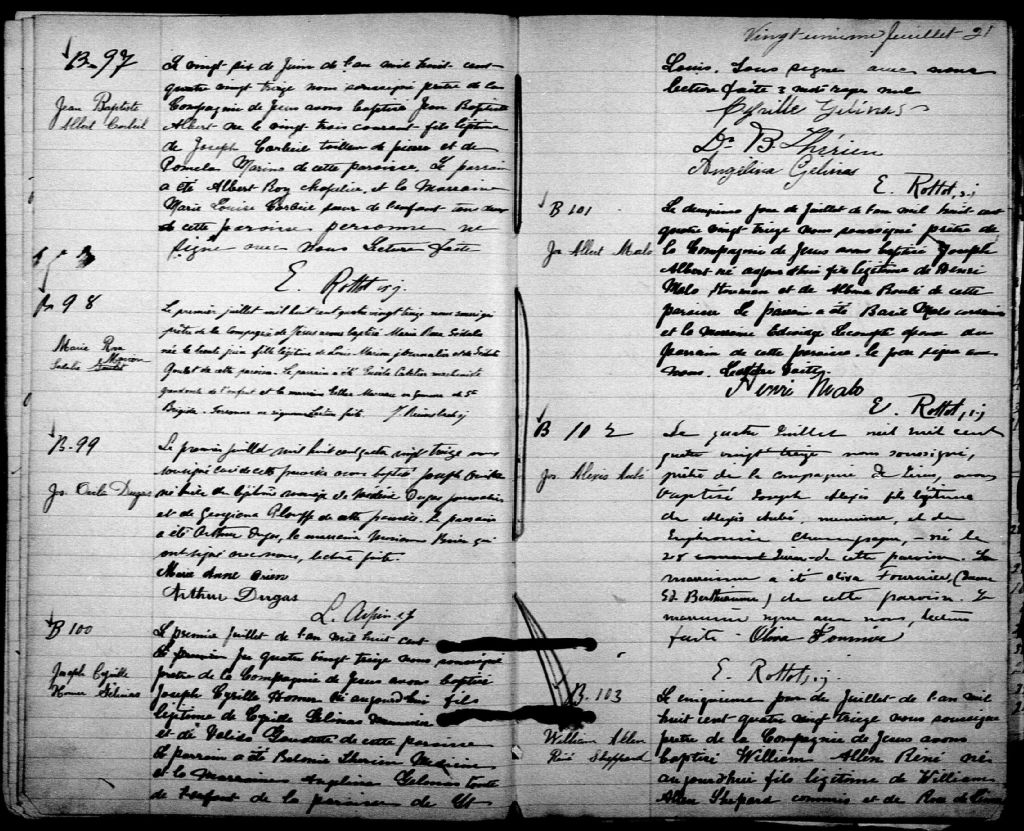 B-97
Jean Baptiste
Albert Corbeil
Le vingt six de Juin de l'an mil huit cent
quatre vingt treize nous soussigné prêtre de la
Compagnie de Jesus avons baptisé Jean Baptiste
Albert né le vingt trois courant fils légitime
de Joseph Corbeil tailleur de pierre et de
Pomela Marino de cette paroisse. Le parrain
a été Albert Roy chapelier, et la Marraine
Marie Louise Corbeil sœur de l'enfant tous deux
de cette paroisse personne ne
signe avec nous Lecture faite
E. Rottot, s.j.
B 98
Marie Rose
Le premier juillet mil huit cent quatre vingt treize nous soussigné
prêtre de la Compagnie de Jésus avons baptisé Marie Rose
née le trente juin fille légitime de Louis journalier et de
Goulet de cette paroisse. Le parrain a été machiniste
de l'enfant et la marraine de St
Brigide. Personne ne signe Lecture faite
B-99
Jos. Dugas
Le premier juillet mil huit cent quatre vingt treize nous
soussigné curé de cette paroisse avons baptisé Joseph
né du légitime mariage de Médéric Dugas journalier
et de Georgiana Plouffe de cette paroisse. Le parrain
a été Arthur Dugas, la marraine qui
ont signé avec nous, lecture faite.
Marie Anne
Arthur Dugas
L. Arpin s.j.
B 100
Joseph Cyrille
Homer Gélinas
Le premier Juillet de l'an mil huit cent
quatre vingt treize nous soussigné
prêtre de la Compagnie de Jesus avons baptisé
Joseph Cyrille Homer né aujourd'hui fils
légitime de Cyrille Gélinas
et de Délida de cette paroisse
Le parrain a été Thérien Médecin
et la Marraine Angelina Gelinas tante
de l'enfant de la paroisse de St
Vingt unième feuillet 21
Louis. Tous signe avec nous
Lecture faite 2 mots rayés nul
Cyrille Gélinas
Dr B. Thérien
Angélina Gélinas
E. Rottot, s.j.
B 101
Js Albert Malo
Le deuxième jour de Juillet de l'an mil huit cent
quatre vingt treize nous soussigné prêtre de
la Compagnie de Jesus avons baptisé Joseph
Albert né aujourd'hui fils légitime de Henri
Malo et de Albina de cette
paroisse Le parrain a été Basil Malo
et la marraine Edwidge Lecompte épouse du
parrain de cette paroisse. le père signe avec
nous. Lecture faite.
Henri Malo
E. Rottot, s.j.
B 102
Jos. Alexis Aubé
Le quatre Juillet mil huit cent
quatre vingt treize nous soussigné,
prêtre de la compagnie de Jésus, avons
baptisé Joseph Alexis fils légitime
de Alexis Aubé, menuisier, et de
Euphrosine Champagne, - né le
28 de cette paroisse. La
marraine a été Oliva Fournier, (Dame
Ed. Berthiaume) de cette paroisse. La
marraine signe avec nous, lecture
faite - Oliva Fournier
E. Rottot, s.j.
B-103
William Allen
René Sheppard
Le cinquième jour de Juillet de l'an mil
huit cent quatre vingt treize nous soussigné
prêtre de la Compagnie de Jesus avons
baptisé William Allen René né
aujourd'hui fils légitime de William
Allen Shepard commis et de Rose de Lima